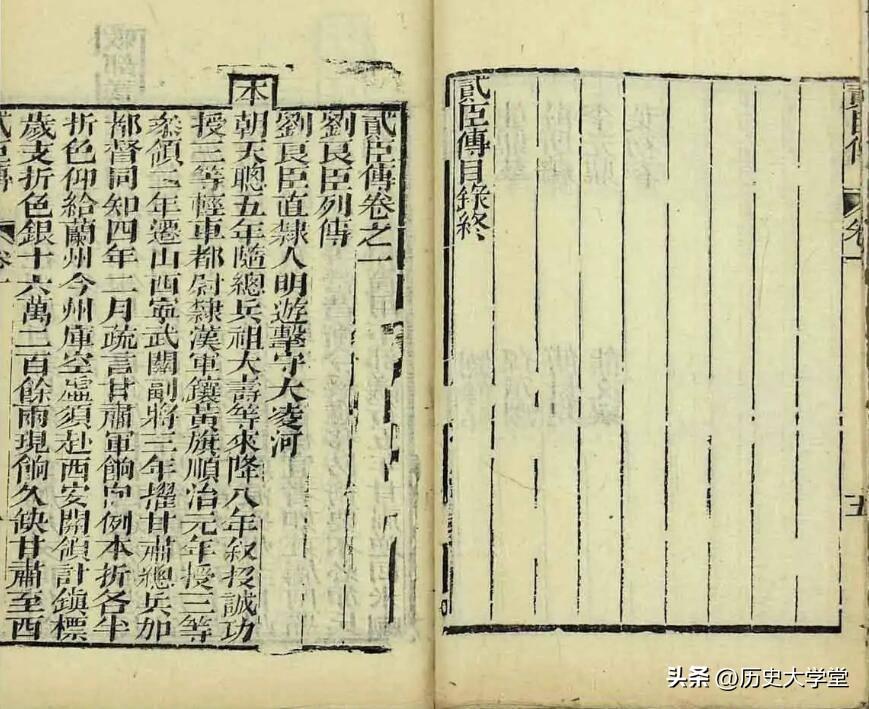 貳臣傳
卷一
五
貳臣傳目錄終
貳臣傳卷之一
劉良臣列傳
劉良臣直隸人明遊擊守大凌河
本
朝天聰五年隨總兵祖大壽等來降八年叙投誠功
授三等輕車都尉隸漢軍鑲黃旗順治元年授三等
叅領二年遷山西寧武關副將三年擢甘肅總兵加
都督同知四年二月疏言甘肅軍餉向例本折各半
折色仰給蘭州今州庫空虛須赴西安關領計鎮標
歲支折色銀十六萬二百餘兩現餉久缺甘肅至西
貳臣傳
卷一
头条 @历史大学堂